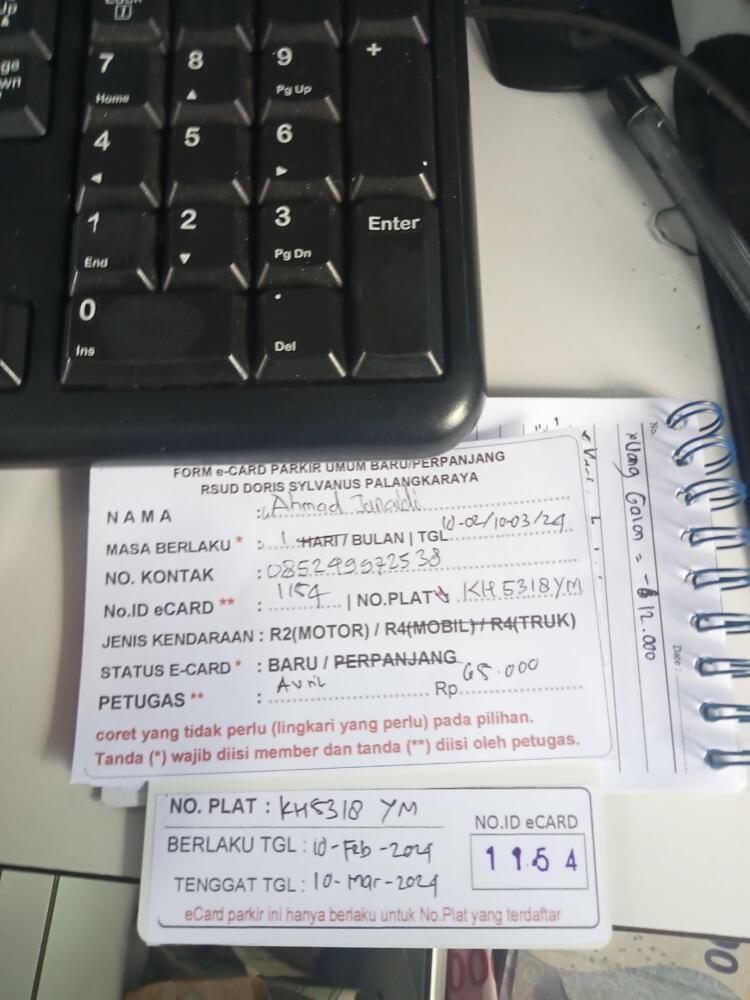 7 8 9 +
Home ▲ Pg Up
4 5 6
◄ ►
1 2 3 Enter
End ▼ Pg Dn
0 .
Ins Del
FORM e-CARD PARKIR UMUM BARU/PERPANJANG
RSUD DORIS SYLVANUS PALANGKARAYA
NAMA : Ahmad Junaidi
MASA BERLAKU * : 1 HARI / BULAN | TGL 10-02/10-03/24
NO. KONTAK : 085249972538
No.ID eCARD ** : 1154 | NO.PLAT * KH 5318 YM
JENIS KENDARAAN : R2(MOTOR) / R4(MOBIL) / R4(TRUK)
STATUS E-CARD * : BARU / PERPANJANG
PETUGAS ** : Avril Rp 65.000
coret yang tidak perlu (lingkari yang perlu) pada pilihan.
Tanda (*) wajib diisi member dan tanda (**) diisi oleh petugas.
No.
Date :
Uang Galon = - 12.000
NO. PLAT : KH 5318 YM
BERLAKU TGL : 10-Feb-2024
TENGGAT TGL : 10-Mar-2024
NO.ID eCARD
1154
eCard parkir ini hanya berlaku untuk No.Plat yang terdaftar